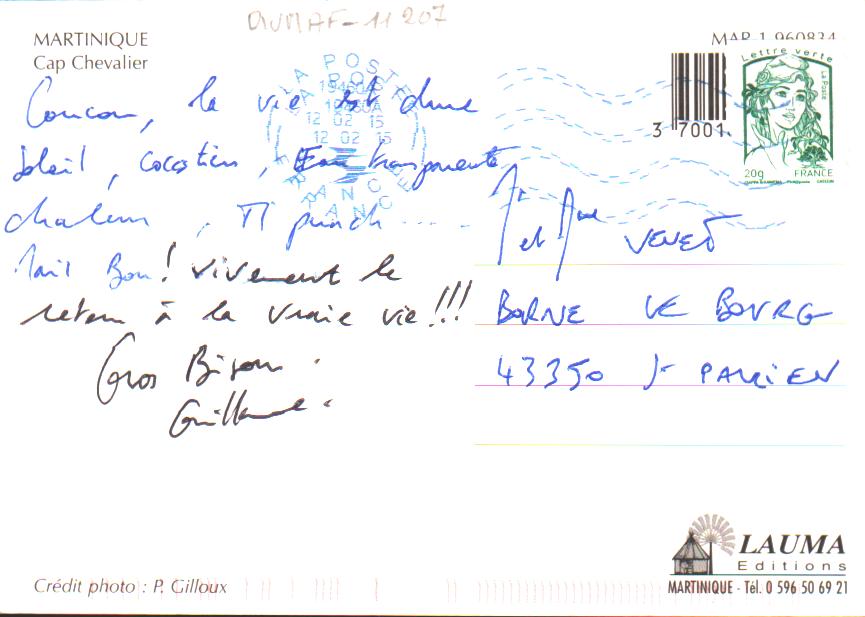 DIVMAF-11207
MARTINIQUE
Cap Chevalier
MAR 1 960834
Coucou, la vie est dure
soleil, cocotiers, Eau transparente
chaleur, Ti punch ....
Mais Bon! vivement le
retour à la vraie vie!!!
Gros Bisou.
Guillaume.
LA POSTE
12 02 15
12 02 15
FRANCE
3 7001
Lettre verte
La Poste
20g FRANCE
Mr et Mme VENET
BORNE LE BOURG
43350 St PAULIEN
LAUMA
Editions
MARTINIQUE - Tél. 0 596 50 69 21
Crédit photo : P. Gilloux